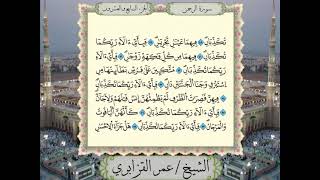 الجزء السابع والعشرون
سورة الرحمن
تُكَذِّبَانِ فِيهِمَا عَيْنَانِ تَجْرِيَانِ فَبِأَيِّ ءَالَآءِ رَبِّكُمَا
تُكَذِّبَانِ فِيهِمَا مِن كُلِّ فَٰكِهَةٍ زَوْجَانِ فَبِأَيِّ ءَالَآءِ
رَبِّكُمَا تُكَذِّبَانِ مُتَّكِـِٔينَ عَلَىٰ فُرُشٍۭ بَطَآئِنُهَا مِنْ
إِسْتَبْرَقٍ وَجَنَى ٱلْجَنَّتَيْنِ دَانٍ فَبِأَيِّ ءَالَآءِ رَبِّكُمَا تُكَذِّبَانِ
فِيهِنَّ قَٰصِرَٰتُ ٱلطَّرْفِ لَمْ يَطْمِثْهُنَّ إِنسٌ قَبْلَهُمْ وَلَا جَآنٌّ
فَبِأَيِّ ءَالَآءِ رَبِّكُمَا تُكَذِّبَانِ كَأَنَّهُنَّ ٱلْيَاقُوتُ
وَٱلْمَرْجَانُ فَبِأَيِّ ءَالَآءِ رَبِّكُمَا تُكَذِّبَانِ هَلْ جَزَآءُ ٱلْإِحْسَٰنِ
الشيخ / عمر القزابري